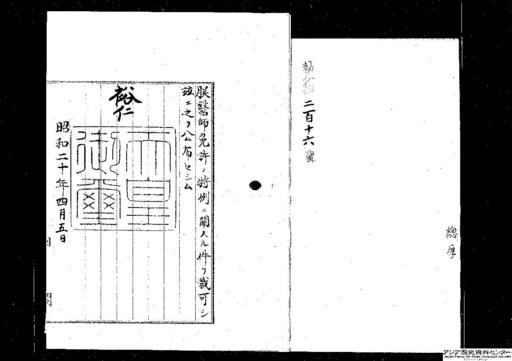 勅令第二百十六號
總厚
朕醫師免許ノ特例ニ關スル件ヲ裁可シ
茲ニ之ヲ公布セシム
裕仁
天皇御璽
昭和二十年四月五日
内閣
アジア歴史資料センター
Japan Center for Asian Historical Records